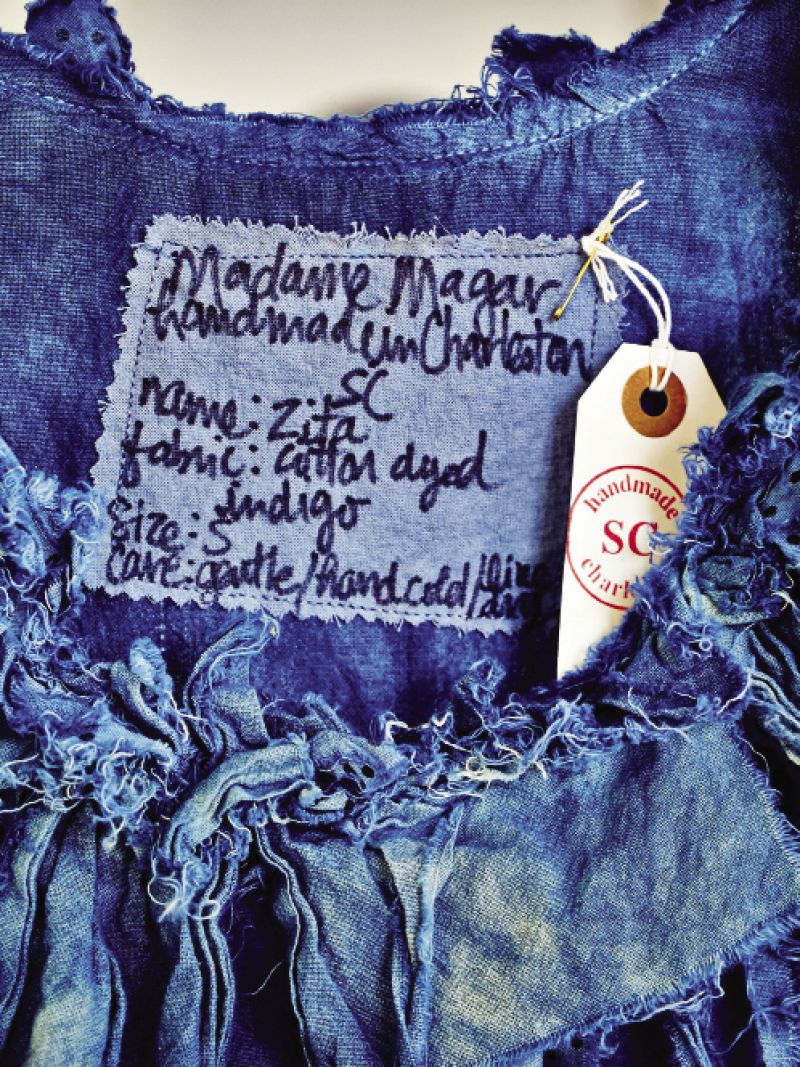 Madame Magar
handmade in Charleston
SC
name: Zita
fabric: cotton dyed
indigo
Size: S
Care: gentle/hand cold/line
handmade
SC